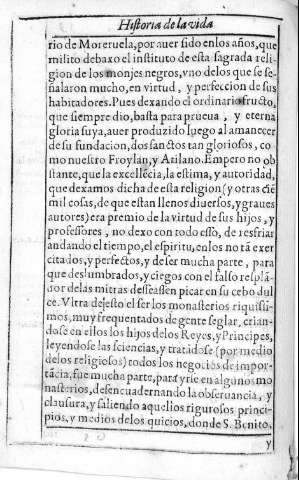 Historia de la vida
rio de Moreruela, por auer sido enlos años, que
milito debaxo el instituto de esta sagrada reli
gion de los monjes negros, vno delos que se se-
ñalaron mucho, en virtud, y perfeccion de sus
habitadores. Pues dexando el ordinario fructo,
que siempre dio, basta para prueua, y eterna
gloria suya, auer produzido luego al amanecer
de su fundacion, dos sanctos tan gloriosos, co
mo nuestro Froylan, y Atilano. Empero no ob
stante, que la excellẽcia, la estima, y autoridad,
que dexamos dicha de esta religion (y otras ciẽ
mil cosas, de que estan llenos diuersos, y graues
autores) era premio de la virtud de sus hijos, y
professores, no dexo con todo esso, de resfriar
andando el tiempo, el espiritu, enlos no tã exer
citados, y perfectos, y de ser mucha parte, para
que deslumbrados, y ciegos con el falso resplã-
dor delas mitras desseassen picar en su cebo dul
ce. Vltra dejesto el ser los monasterios riquissi-
mos, muy frequentados de gente seglar, crian-
dose en ellos los hijos delos Reyes, y Principes,
leyendose las sciencias, y tratãdose (por medio
delos religiosos) todos los negocios de impor-
tãcia, fue mucha parte, para yr ie en algunos mo
nasterios, desencuadernando la obseruancia, y
clausura, y saliendo aquellos rigurosos princi-
pios, y medios delos quicios, donde S. Benito,
y